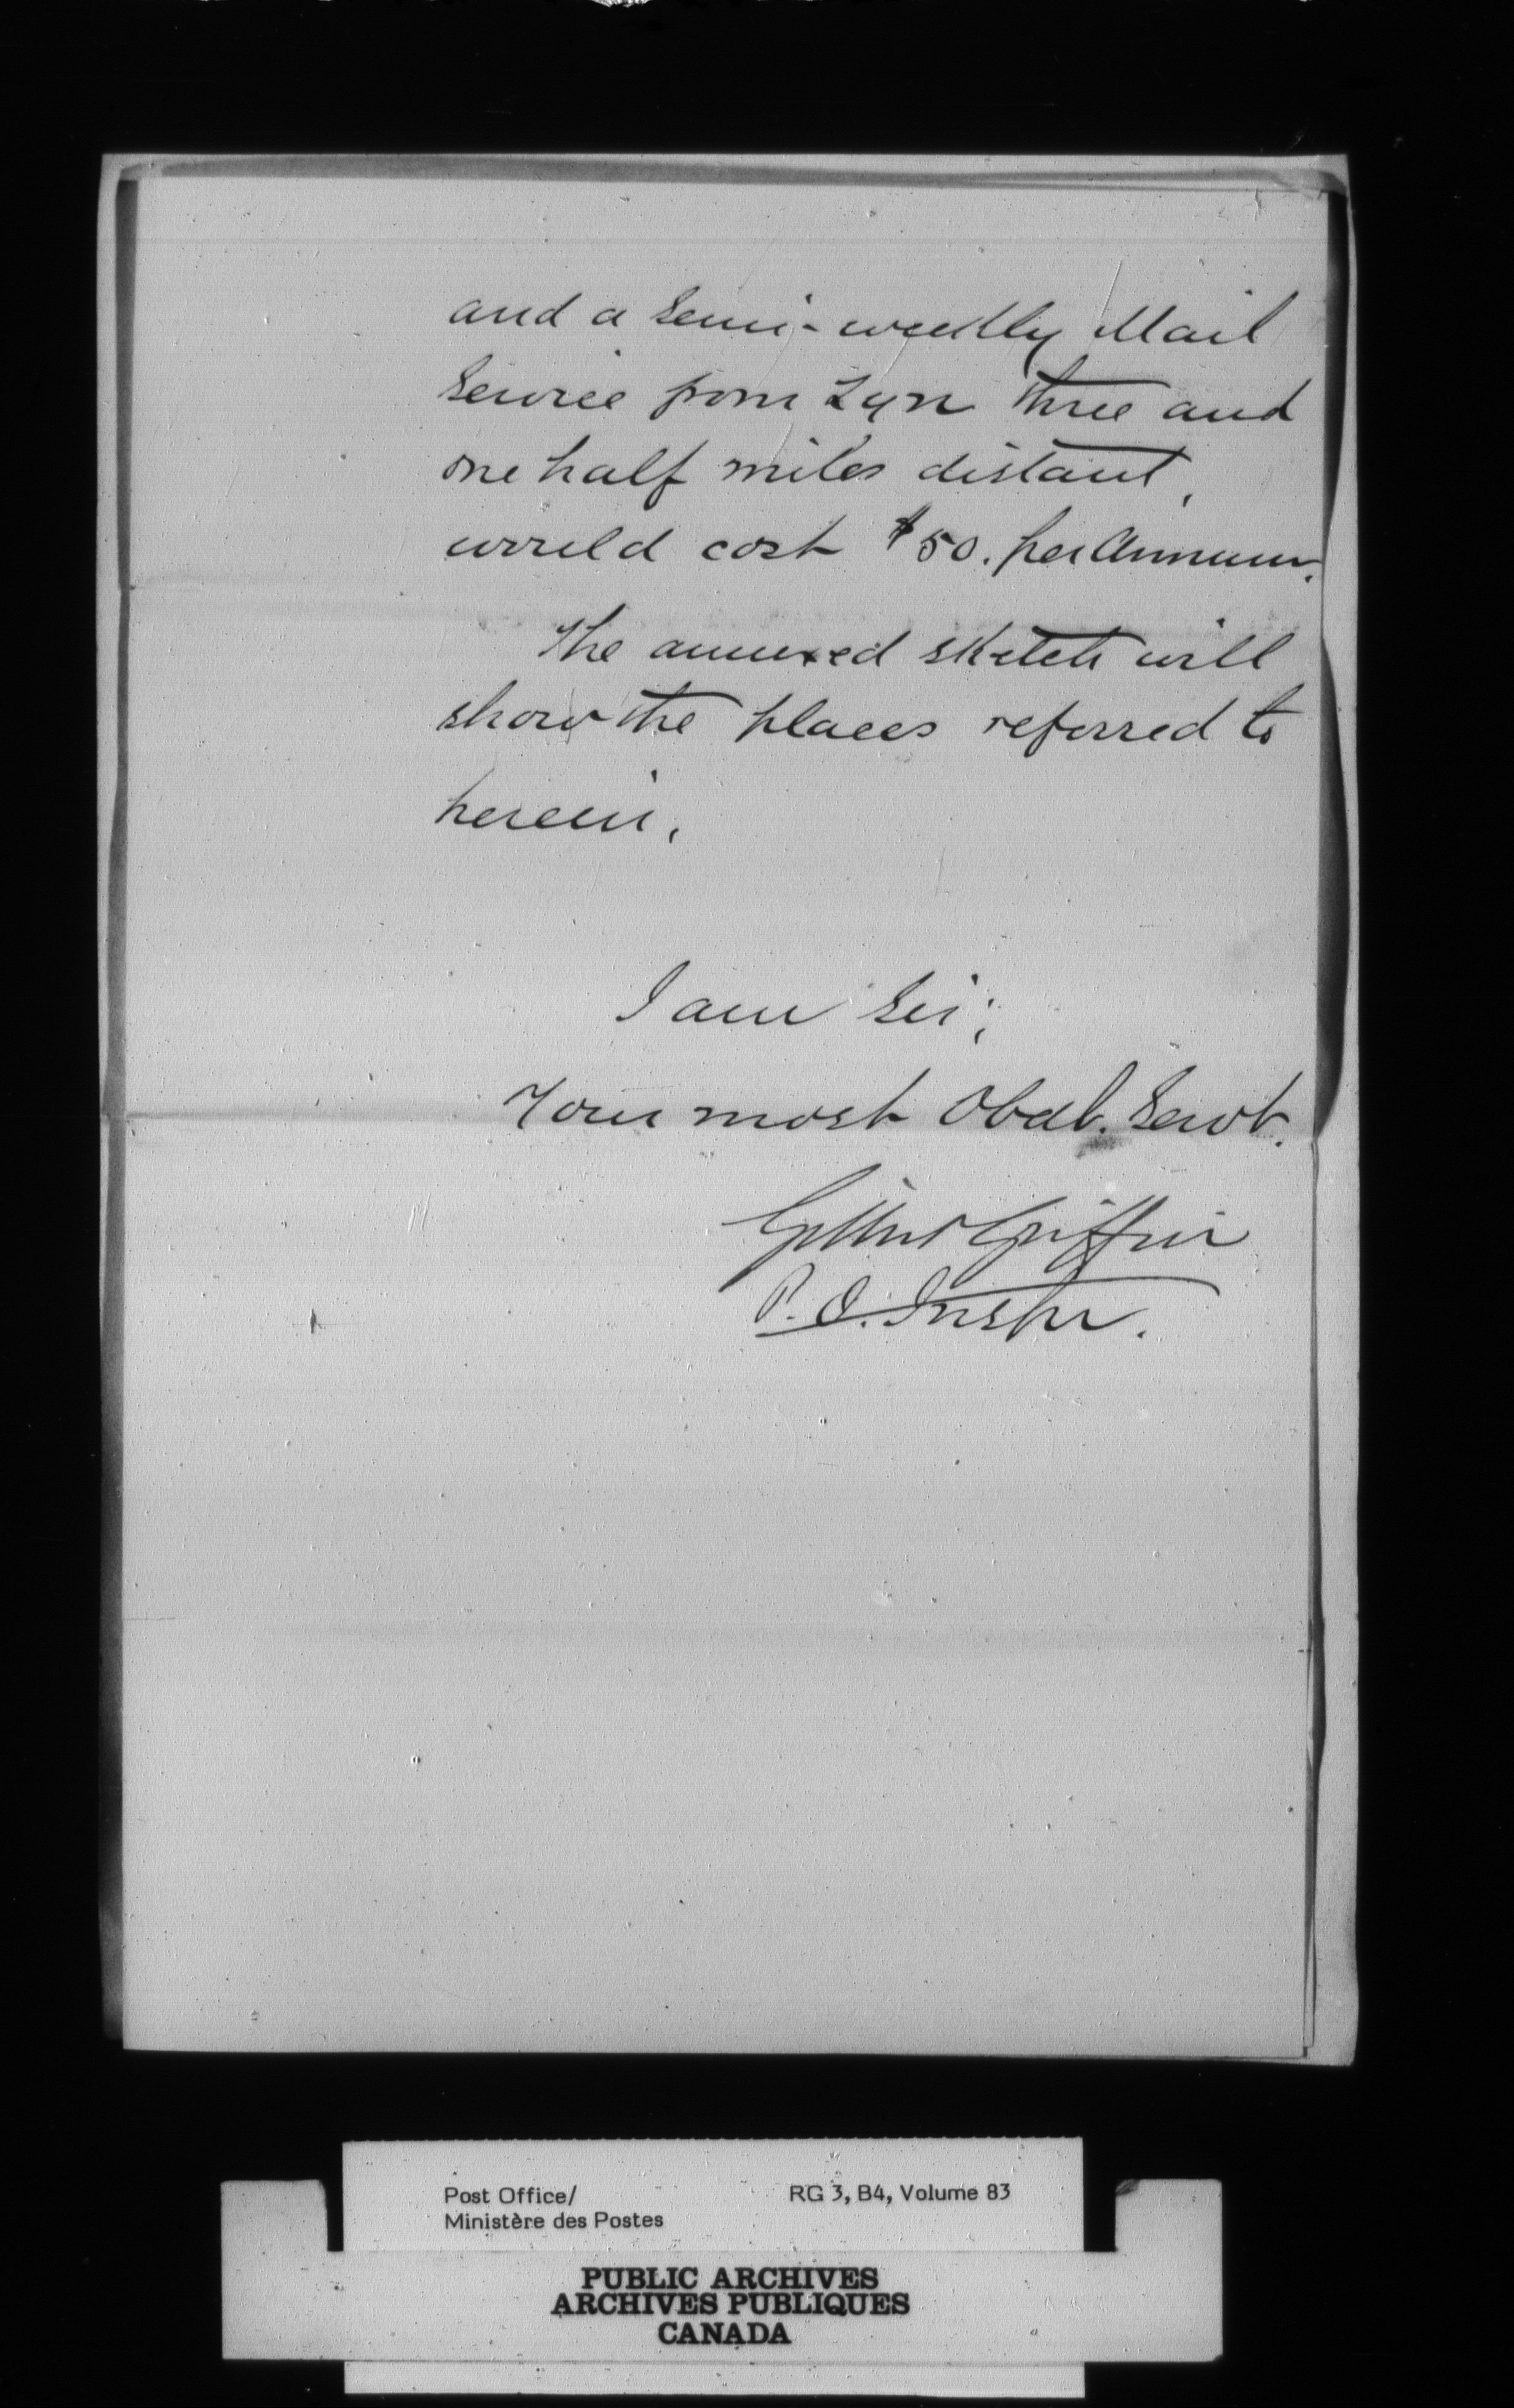 and a Semi-weekly Mail
Service from Lyn three and
one half miles distant,
would cost $50. per Annum.
The annexed sketch will
show the places referred to
herein.
I am Sir,
Your most Obdt. Servt.
Gilbert Griffin
P.O. Inspr.
Post Office/
Ministère des Postes
RG 3, B4, Volume 83
PUBLIC ARCHIVES
ARCHIVES PUBLIQUES
CANADA